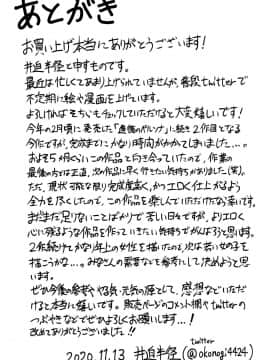 あとがき
お買い上げ本当にありがとうございます！
井迫半径と申すものです。
最近は忙しくてあまり上げられていませんが、普段twitterで
不定期に絵や漫画を上げています。
よろしければそちらもチェックしていただけると大変嬉しいです！
今年の2月頃に発売した「　　　」に続き2作目となる
今作ですが、完成までにかなり時間がかかってしまいました…。
およそ5ヶ月くらいこの作品と向き合っていたので、作業の
最後の方は正直、次の作品に早く行きたい気持ちがありました(笑)。
ただ、現状可能な限り完成度高く、かつエロく仕上がるよう
全力を尽くしたので、この作品を楽しんでいただけたなら幸いです。
まだまだ足りないことばかりで苦しい日々ですが、よりエロく
心に残るような作品を作っていきたい気持ちでがんばろうと思います。
2作続けてかなり年上の女性を描いたので、次は若いめの子を
描こうかな…。みなさんの需要なども参考にして決めようと思
います。
ぜひ今後の参考ややる気・元気の源として、感想などいただ
けると本当に嬉しいです。販売ページのコメント欄やtwitterの
つぶやきなどでぜひよろしくお願いします…！
改めてありがとうございました!!
twitter
2020.11.13 井迫半径(@okonogi4424)